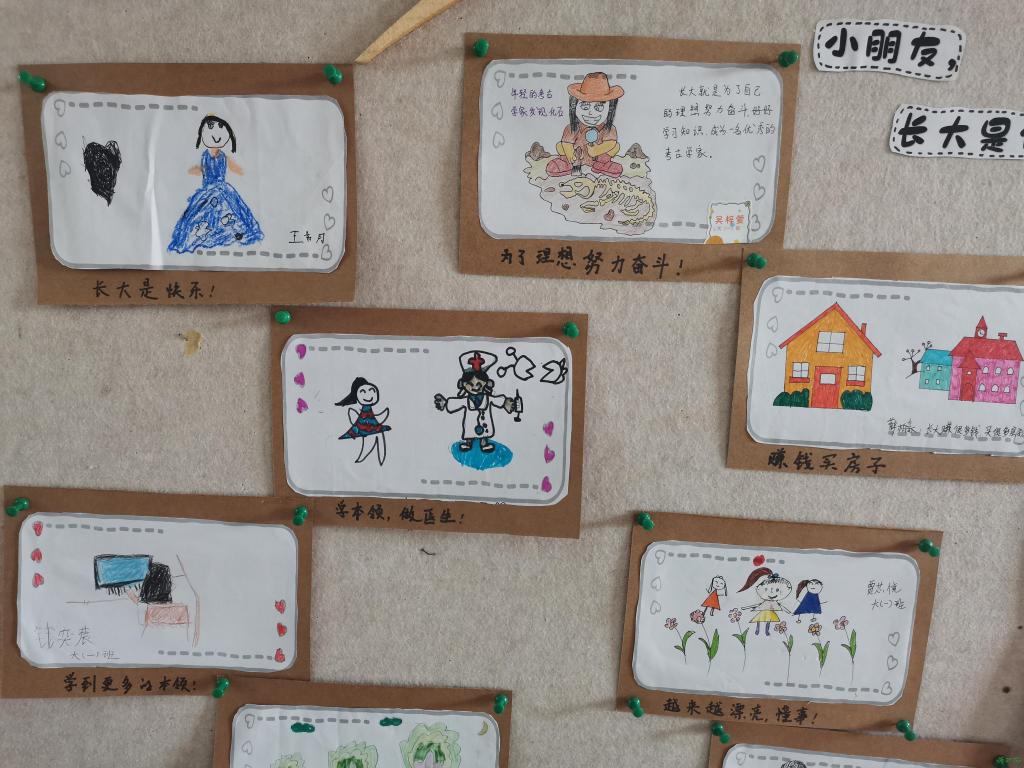 小朋友,
长大是
年轻的考古
学家发现化石
长大就是为了自己
的理想努力奋斗,好好
学习知识,成为一名优秀的
考古学家。
为了理想努力奋斗!
长大是快乐!
学本领,做医生!
赚钱买房子
大(一)班
学到更多的本领!
大(一)班
越来越漂亮,懂事!